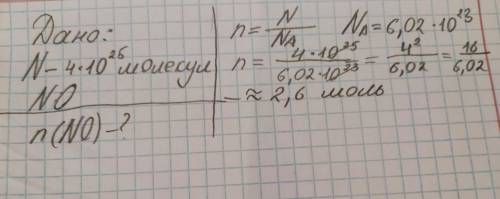 Дано:
N - 4·10²⁵ молекул
NO
n(NO) - ?
n = N/Nₐ Nₐ = 6,02·10²³
n = 4·10²⁵/6,02·10²³ = 4²/6,02 = 16/6,02
≈ 2,6 моль